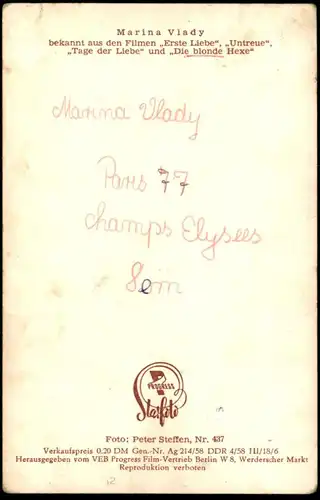 Marina Vlady
bekannt aus den Filmen „Erste Liebe“, „Untreue“,
„Tage der Liebe“ und „Die blonde Hexe“
Marina Vlady
Paris 77
champs Elysees
PROGRESS
Starfoto
Foto: Peter Steffen, Nr. 437
Verkaufspreis 0,20 DM Gen.-Nr. Ag 214/58 DDR 4/58 III/18/6
Herausgegeben vom VEB Progress Film-Vertrieb Berlin W 8, Werderscher Markt
Reproduktion verboten
12